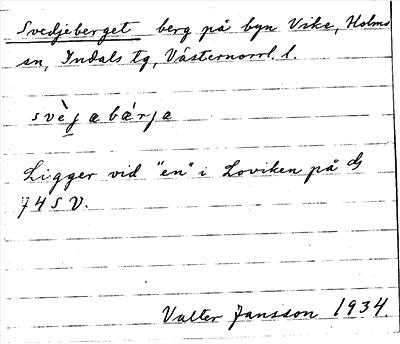 Svedjeberget berg på byn Vike, Holms
sn, Indals tg, Västernorrl. l.
svèjabárja
Ligger vid "en" i Loviken på dj
74 S V.
Valter Jansson 1934.